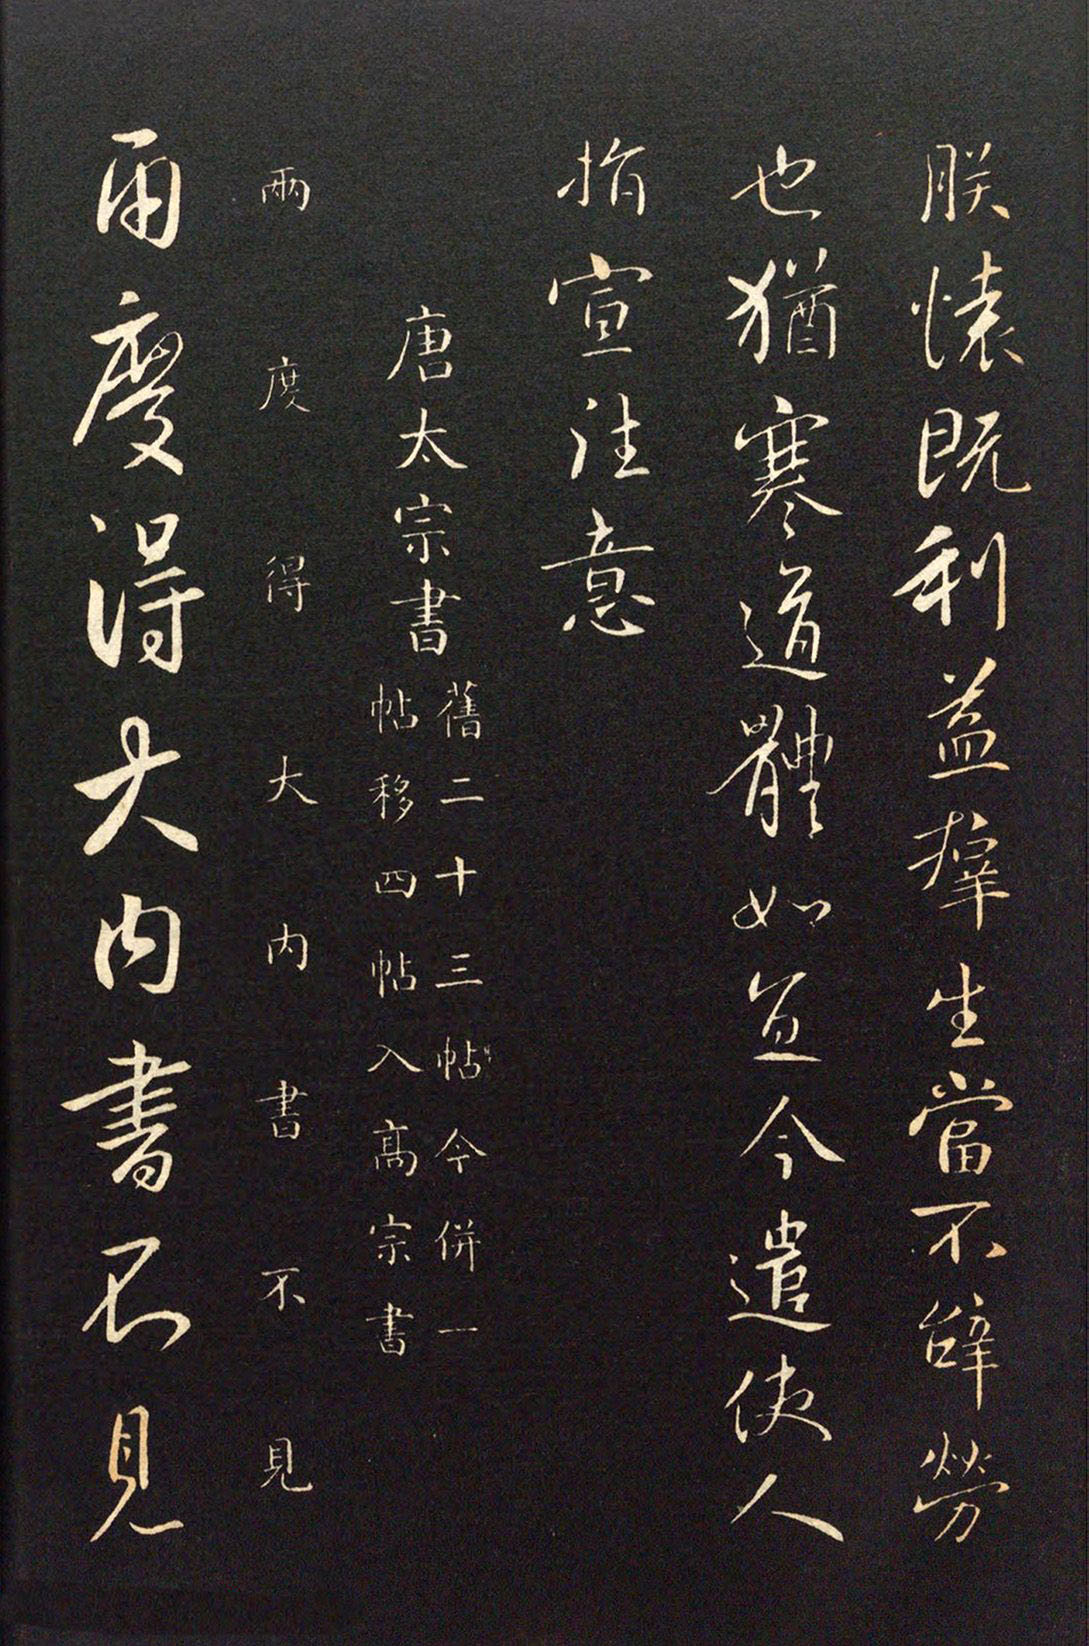 朕懷既利益群生當不辭勞
也猶寒道體如宜今遣使人
指宣往意
唐太宗書
舊二十三帖今併一
帖移四帖入高宗書
兩度得大內書不見
兩度得大內書不見